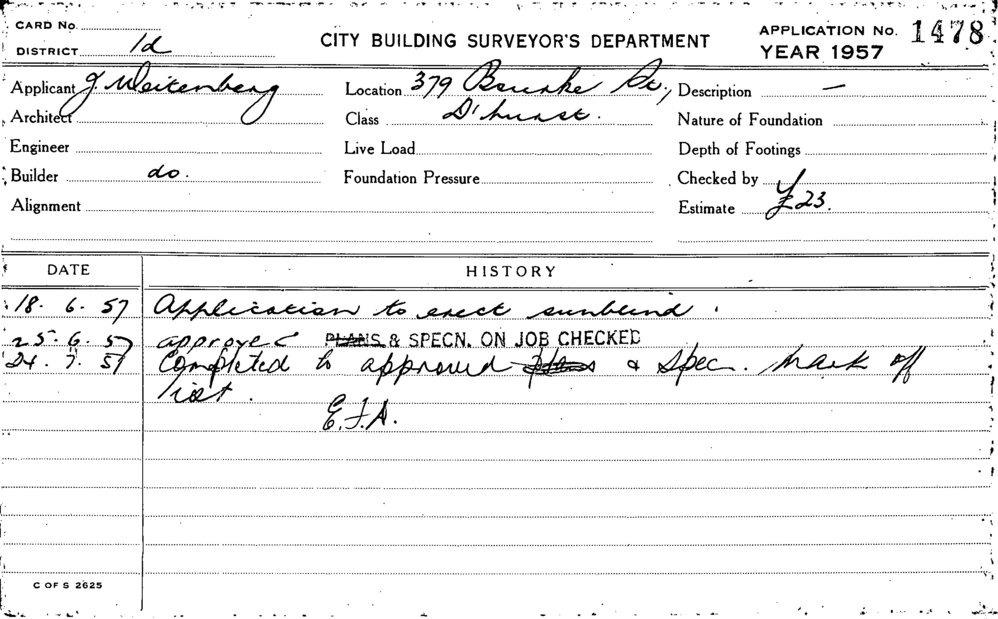 CARD No.
DISTRICT 1d
CITY BUILDING SURVEYOR'S DEPARTMENT
APPLICATION No. 1478
YEAR 1957
Applicant J. Weitenberg
Location 379 Bourke St.,
Description —
Architect
Class D'hurst.
Nature of Foundation
Engineer
Live Load
Depth of Footings
Builder do.
Foundation Pressure
Checked by
Alignment
Estimate £23.
DATE
HISTORY
18. 6. 57 Application to erect sunblind.
25. 6. 57 approved PLANS & SPECN. ON JOB CHECKED
24. 7. 57 Completed to approved plans & spec. Mark off
list.
E.J.A.
C OF S 2625